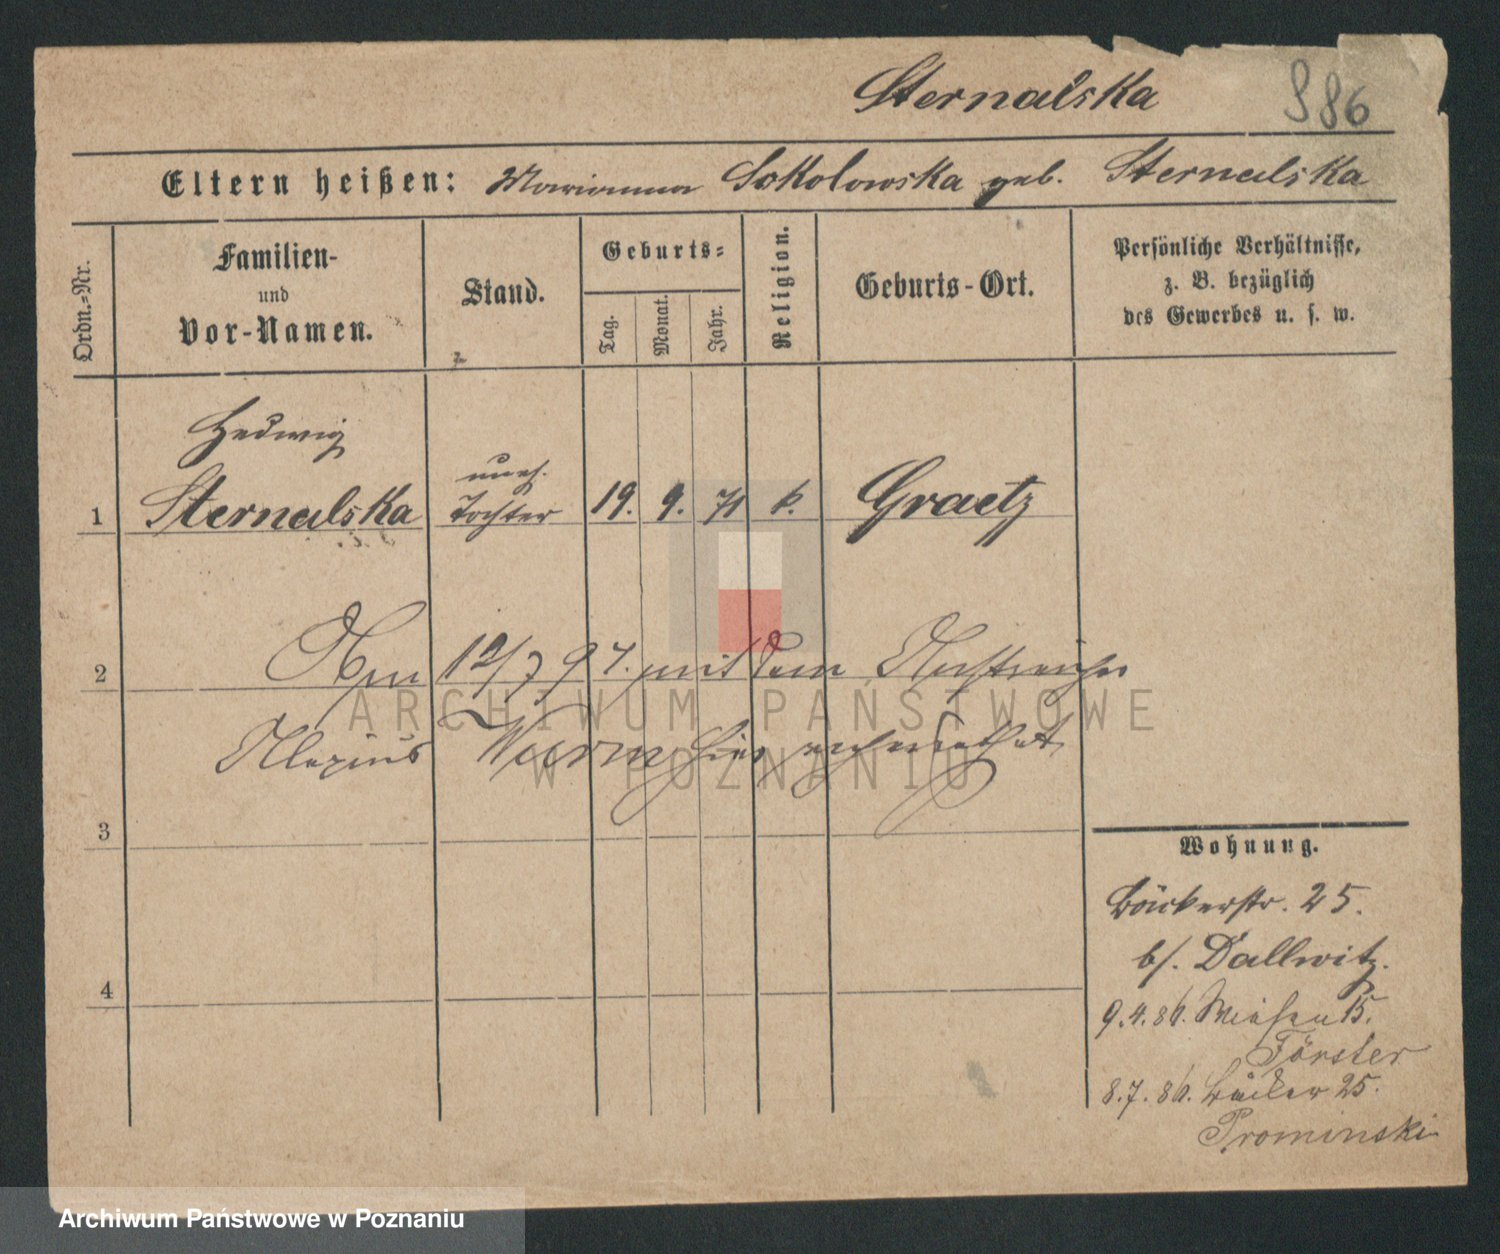 Sternalska 986
Eltern heißen: Marianna Sokolowska geb. Sternalska
Ordn.=Nr.
Familien-
und
Vor-Namen.
Stand.
Geburts=
Tag.
Monat.
Jahr.
Religion.
Geburts-Ort.
Persönliche Verhältnisse,
z. B. bezüglich
des Gewerbes u. s. w.
Hedwig
1 Sternalska
uneh.
Tochter
19. 9. 71 k. Graetz
2 Am 12/7 97. mit dem
Alexius Wurm hier
3
Wohnung.
Bäckerstr. 25.
b/. Dallwitz.
4
9.4.86. Wiesen 15.
Förster
8.7.86. Bäcker 25.
Prominski
ARCHIWUM PAŃSTWOWE
W POZNANIU
Archiwum Państwowe w Poznaniu